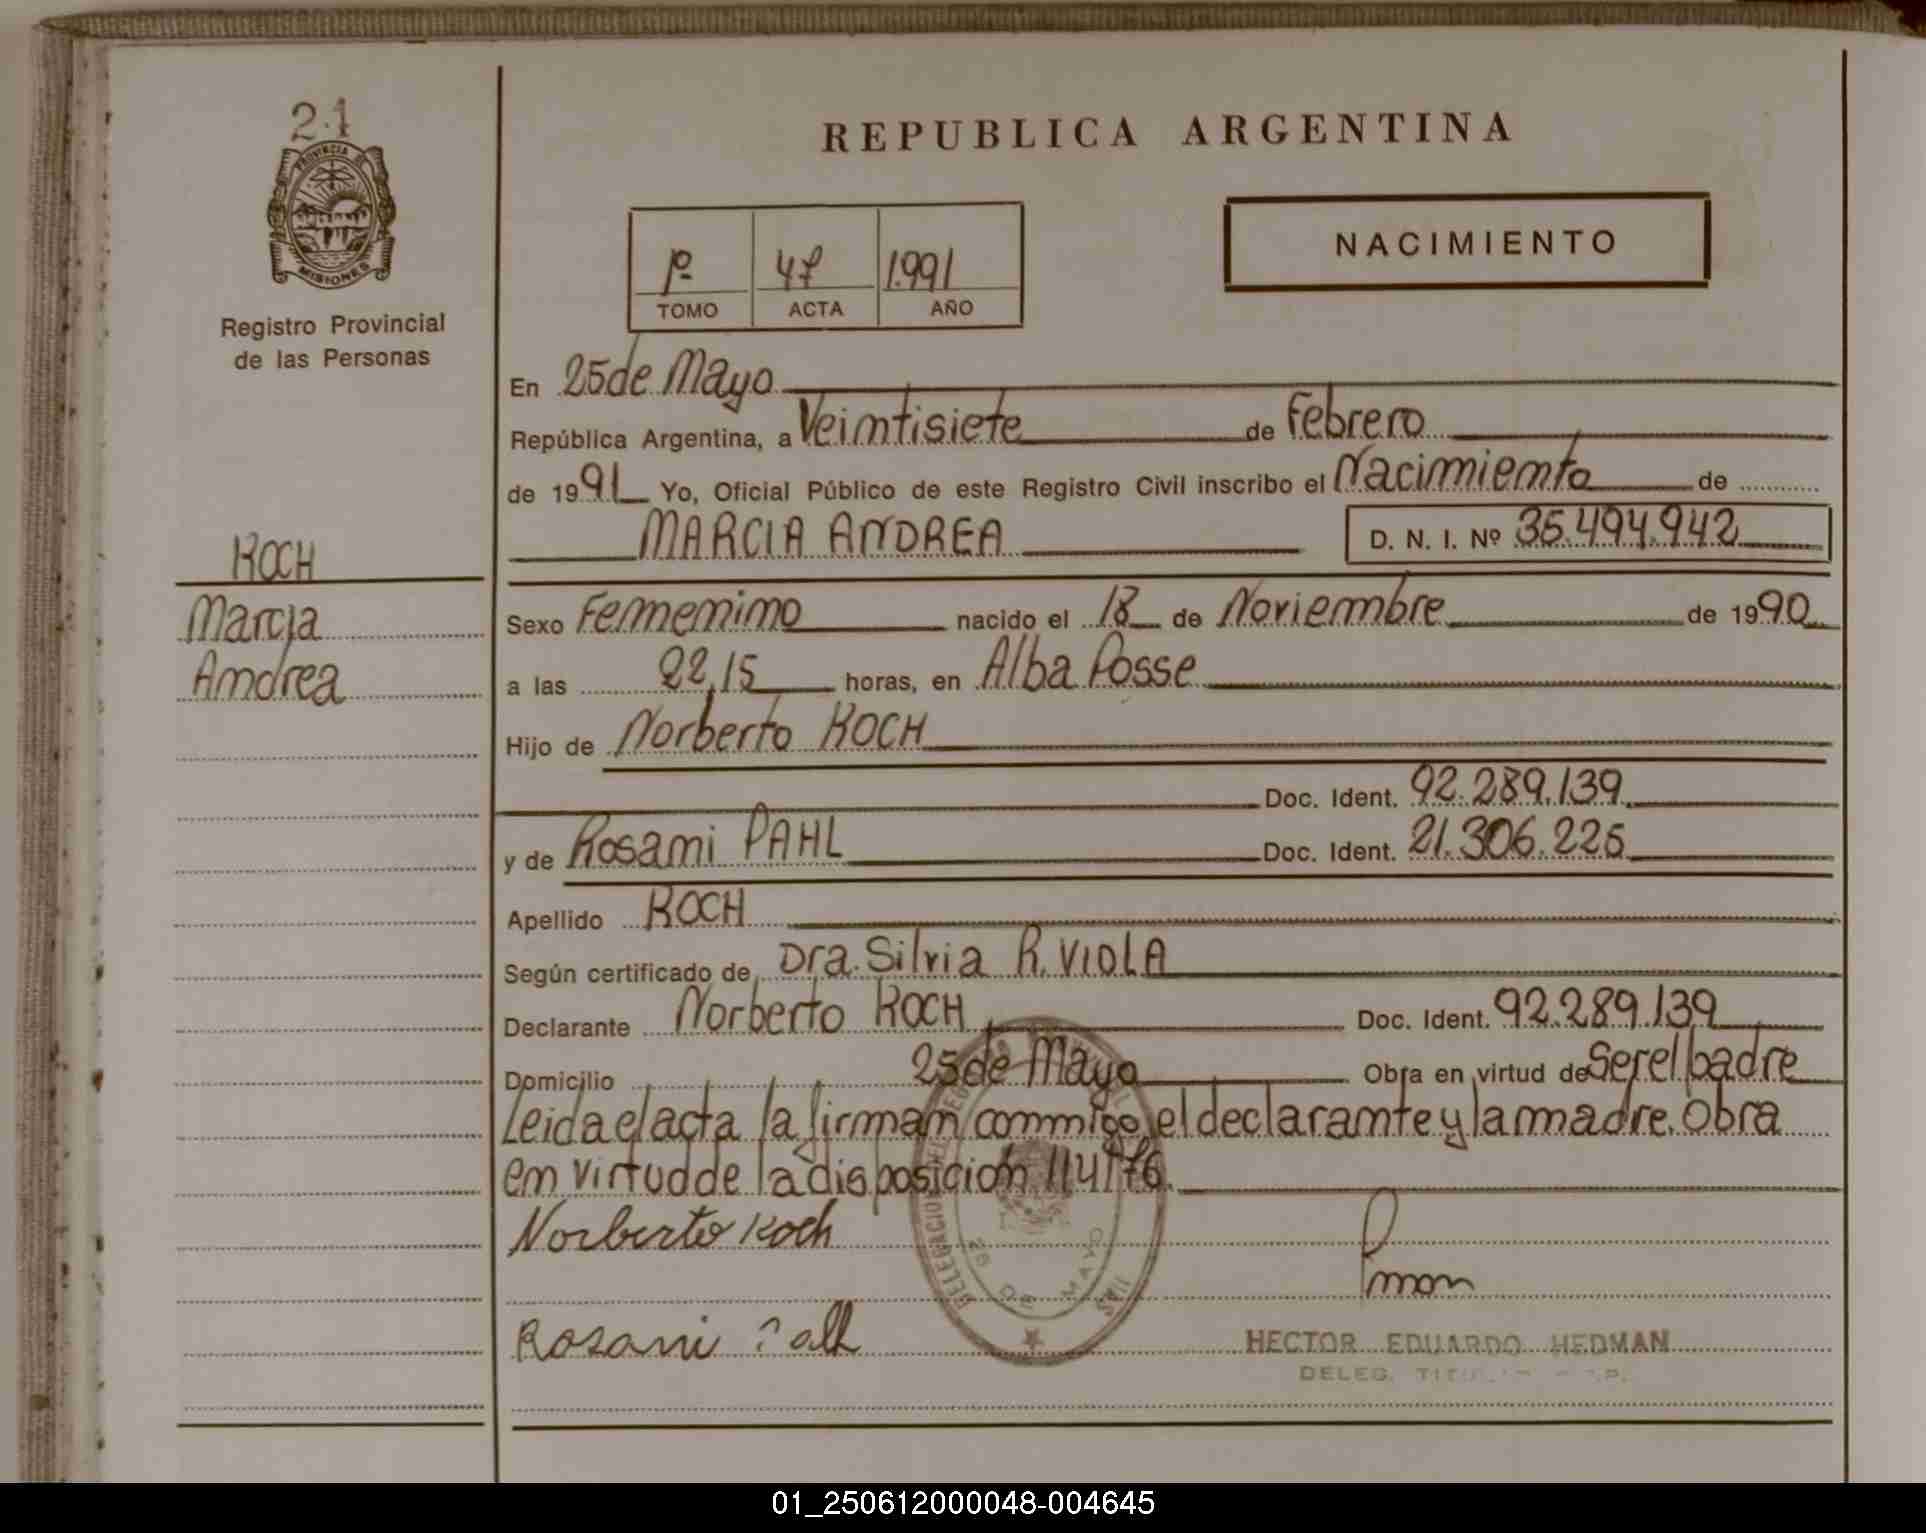 21
PROVINCIA DE
MISIONES
Registro Provincial
de las Personas
KOCH
Marcia
Andrea
REPUBLICA ARGENTINA
NACIMIENTO
1º 47 1.991
TOMO ACTA AÑO
En 25 de Mayo
República Argentina, a Veintisiete de Febrero
de 1991 Yo, Oficial Público de este Registro Civil inscribo el Nacimiento de
MARCIA ANDREA D. N. I. Nº 35.494.942
Sexo Femenino nacido el 18 de Noviembre de 1990
a las 22,15 horas, en Alba Posse
Hijo de Norberto KOCH
Doc. Ident. 92.289.139
y de Rosani PAHL Doc. Ident. 21.306.225
Apellido KOCH
Según certificado de Dra. Silvia R. VIOLA
Declarante Norberto KOCH Doc. Ident. 92.289.139
Domicilio 25 de Mayo Obra en virtud de Ser el padre
Leida el acta la firman conmigo el declarante y la madre. Obra
en virtud de la disposición 114/76.
Norberto Koch
Rosani Palh
25 DE MAYO
HECTOR EDUARDO HEDMAN
DELEG.
01_250612000048-004645